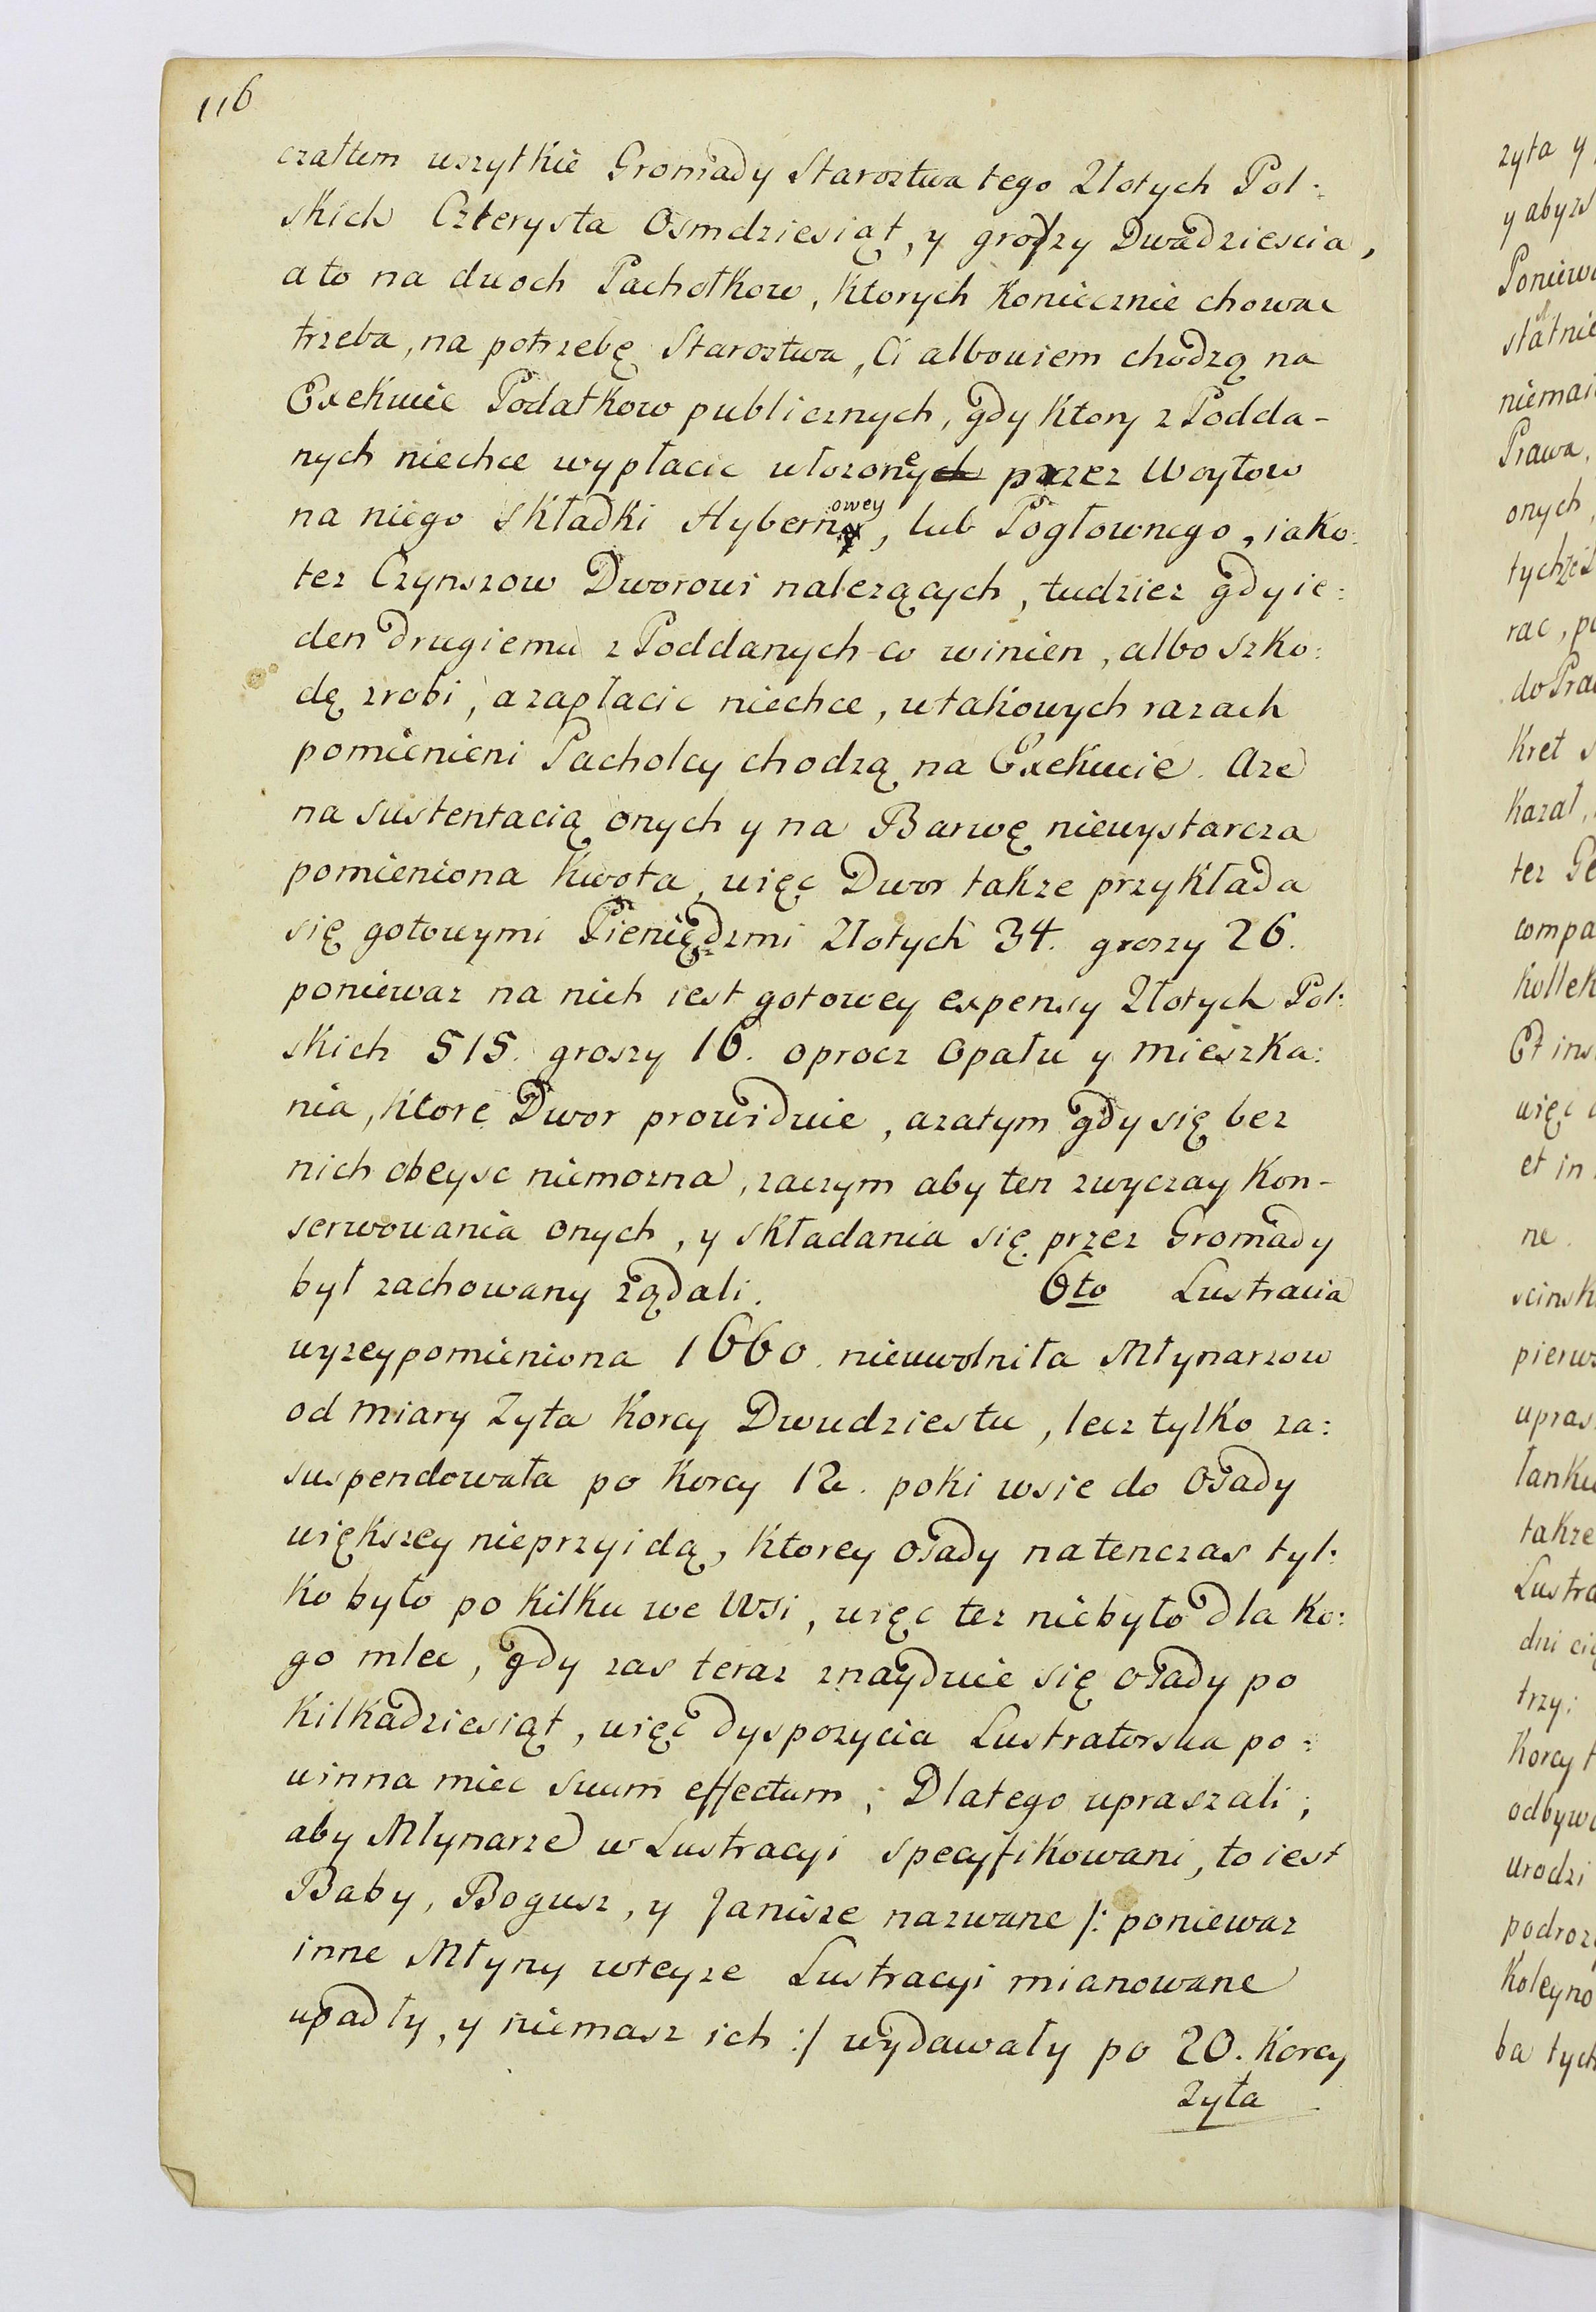 116
czałtem wszytkie Gromady Starostwa tego Złotych Pol:
skich Czterysta Osmdziesiąt, y groszy Dwadziescia,
a to na dwoch Pachołkow, Ktorych Koniecznie chowac
trzeba, na potrzebę Starostwa, Ci albowiem chodzą na
Exekucie Podatkow publicznych, gdy Ktory z Podda-
nych niechce wypłacic włozone przez Woytow
na niego Składki Hybernowey, lub Pogłownego, iako:
tez Czynszow Dworowi nalezących, tudziez gdy ie:
den drugiemu z Poddanych co winien, albo szko:
dę zrobi, a zapłacic niechce, w takowych razach
pomienieni Pacholcy chodzą na Exekucie. Aze
na sustentacią onych y na Barwę niewystarcza
pomieniona Kwota, więc Dwor takze przykłada
się gotowymi Pieniędzmi Złotych 34. groszy 26.
poniewaz na nich iest gotowey expensy Złotych Pol:
skich 515. groszy 16. oprocz Opału y mieszka:
nia, Ktore Dwor prowiduie, azatym gdy się bez
nich obeysc niemozna, zaczym aby ten zwyczay Kon-
serwowania onych, y składania się przez Gromady
był zachowany ządali. 6to Lustracia
wyzeypomieniona 1660. nieuwolniła Młynarzow
od miary Zyta Korcy Dwudziestu, lecz tylko za:
suspendowała po Korcy 12. poki wsie do Osady
większey nieprzyidą, Ktorey osady natenczas tyl:
ko było po Kilku we Wsi, więc tez niebyło dla Ko:
go mlec, gdy zas teraz znayduie się osady po
Kilkadziesiąt, więc dyspozycia Lustratorska po:
winna miec suum effectum; Dlatego upraszali,
aby Młynarze w Lustracyi specyfikowani, to iest
Baby, Bogusz, y Janisze nazwane /: poniewaz
inne Młyny wteyze Lustracyi mianowane
upadły, y niemasz ich :/ wydawały po 20. Korcy
Zyta
zyta y
y abyzs
Poniewa
statnie
niemai
Prawa,
onych,
tychze
rac, po
do Pra
kret s
kazał,
tez Ge
compa
kollek
Et ins
więc
et in
ne.
scinsk
pierws
upras
łanku
takze
Lustra
dni cią
trzy:
Korcy
odbywa
urodzi
podroz
Koleyno
ba tych